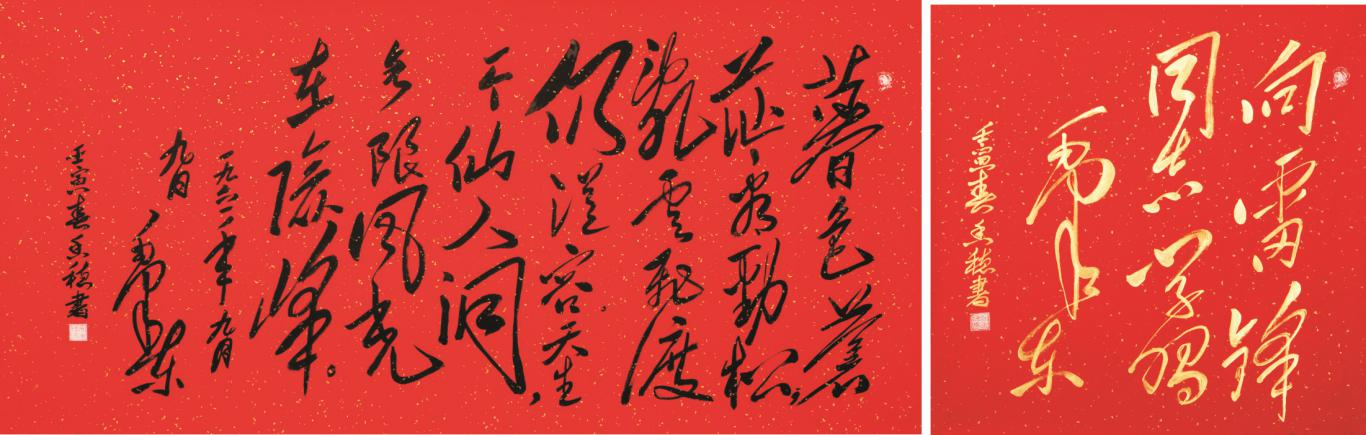 暮色苍
茫看劲松，
乱云飞度
仍从容。天生
一个仙人洞，
无限风光
在险峰。
一九六一年九月
九日
毛泽东
壬寅春穗書
向雷锋
同志学习
毛泽东
壬寅春穗書